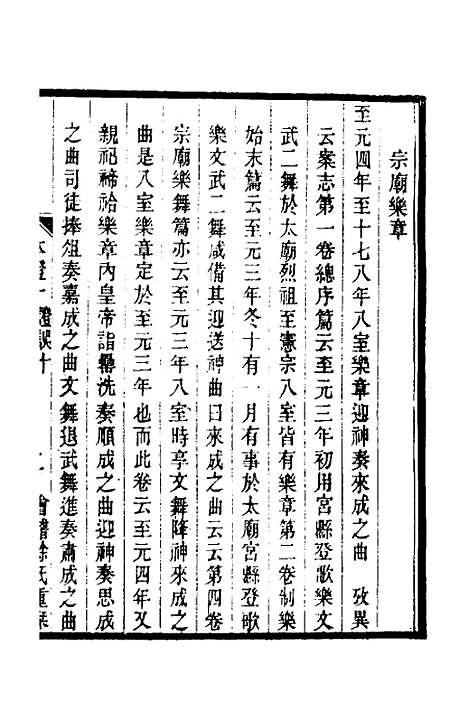 宗廟樂章
至元四年至十七八年八室樂章迎神奏來成之曲　攷異
云案志第一卷總序篇云至元三年初用宮縣登歌樂文
武二舞於太廟烈祖至憲宗八室皆有樂章第二卷制樂
始末篇云至元三年冬十有一月有事於太廟宮縣登歌
樂文武二舞咸備其迎送神曲曰來成之曲云云第四卷
宗廟樂舞篇亦云至元三年八室時享文舞降神來成之
曲是八室樂章定於至元三年也而此卷云至元四年又
親祀禘祫樂章內皇帝詣罍洗奏順成之曲迎神奏思成
之曲司徒捧俎奏嘉成之曲文舞退武舞進奏肅成之曲
本證十　證誤十
會稽徐氏重栞